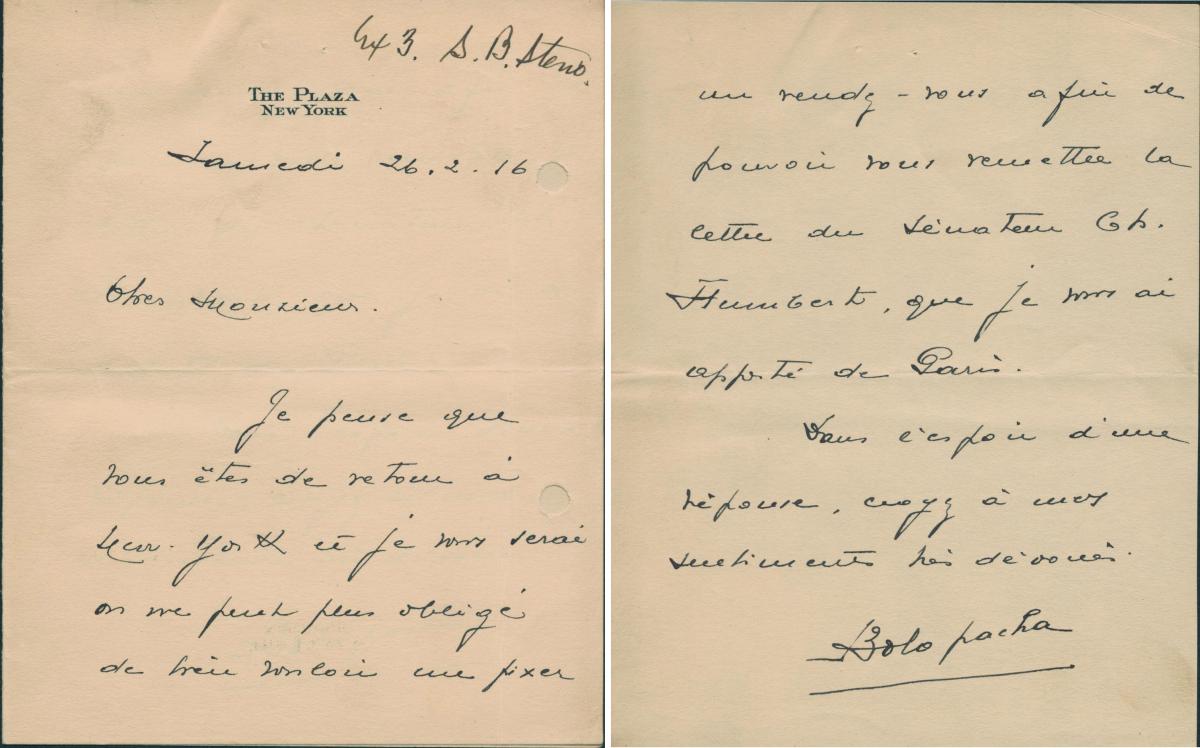 Ex 3. S. B. Steno.
THE PLAZA
NEW YORK
Samedi 26.2.16
Cher Monsieur.
Je pense que
vous êtes de retour à
New-York et je vous serai
on ne peut plus obligé
de bien vouloir me fixer
un rendz-vous afin de
pouvoir vous remettre la
lettre du Sénateur Ch.
Humbert, que je vous ai
apporté de Paris.
Dans l'espoir d'une
réponse, croyez à mes
sentiments très dévoués.
Bolo pacha